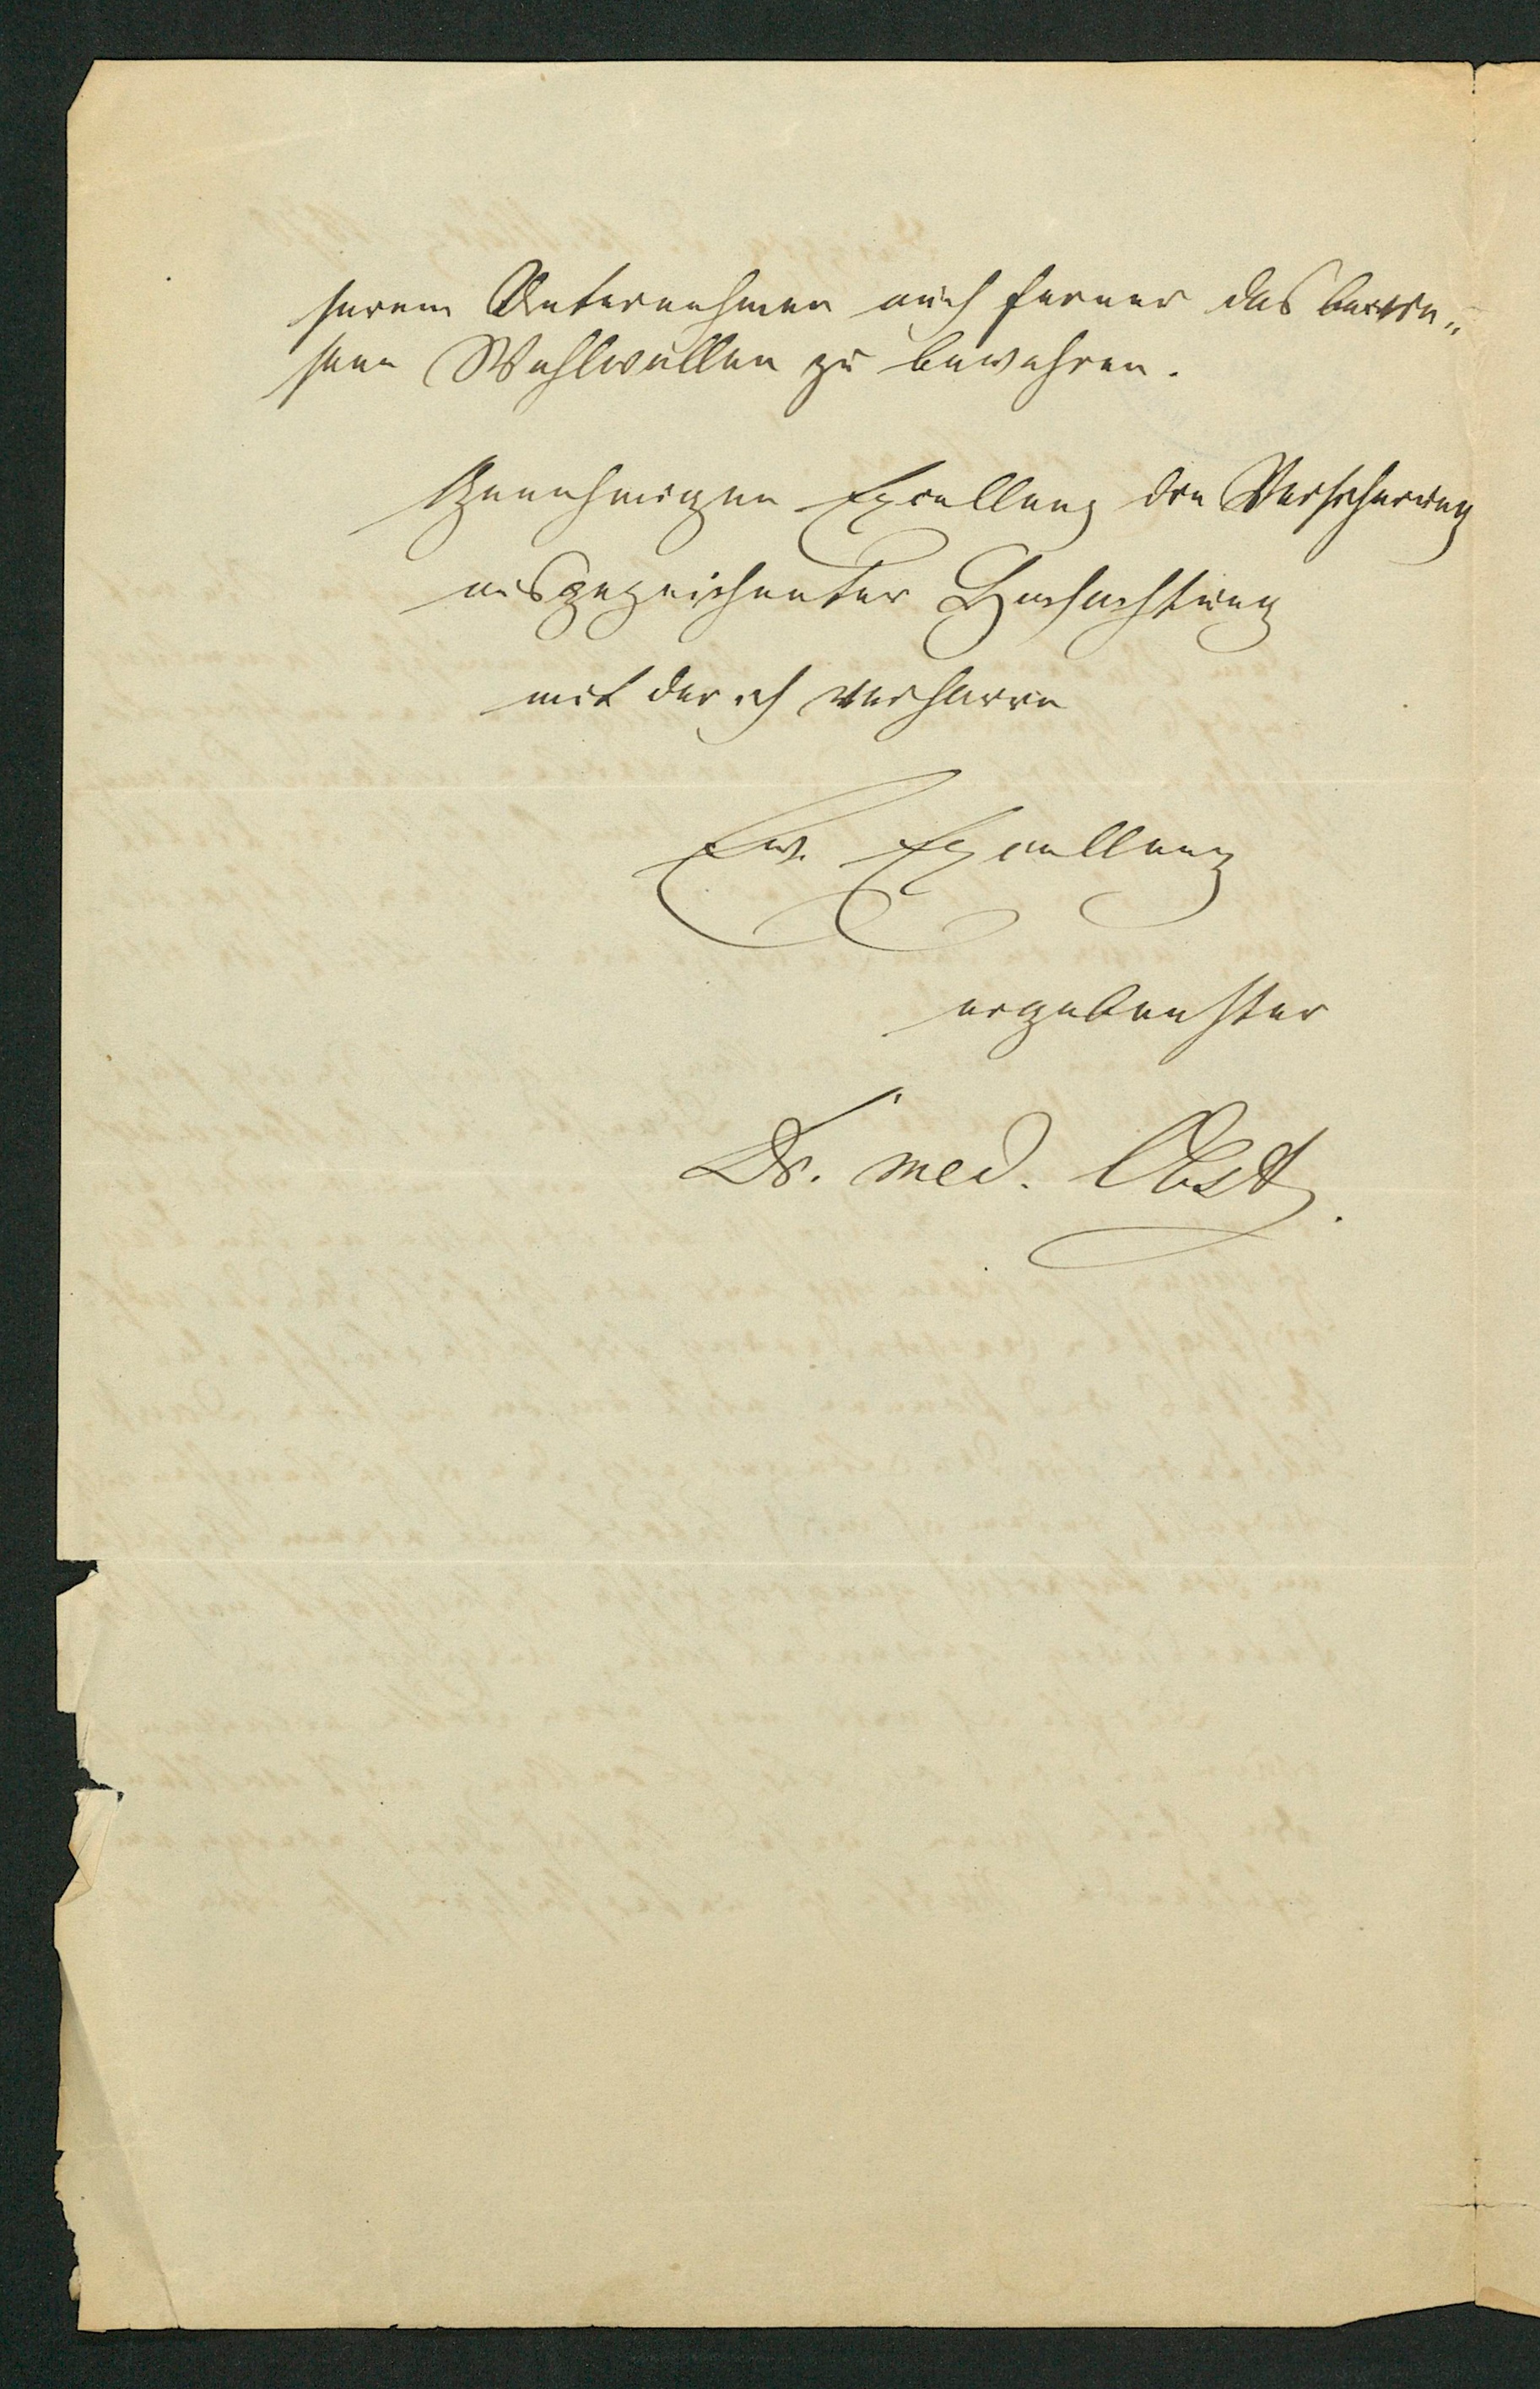 serem Unternehmen auch ferner das bewie„
sene Wohlwollen zu bewahren.
Genehmigen Excellenz die Versicherung
ausgezeichneter Hochachtung
mit der ich verharre
Ew. Excellenz
ergebenster
Dr. med. Obst.